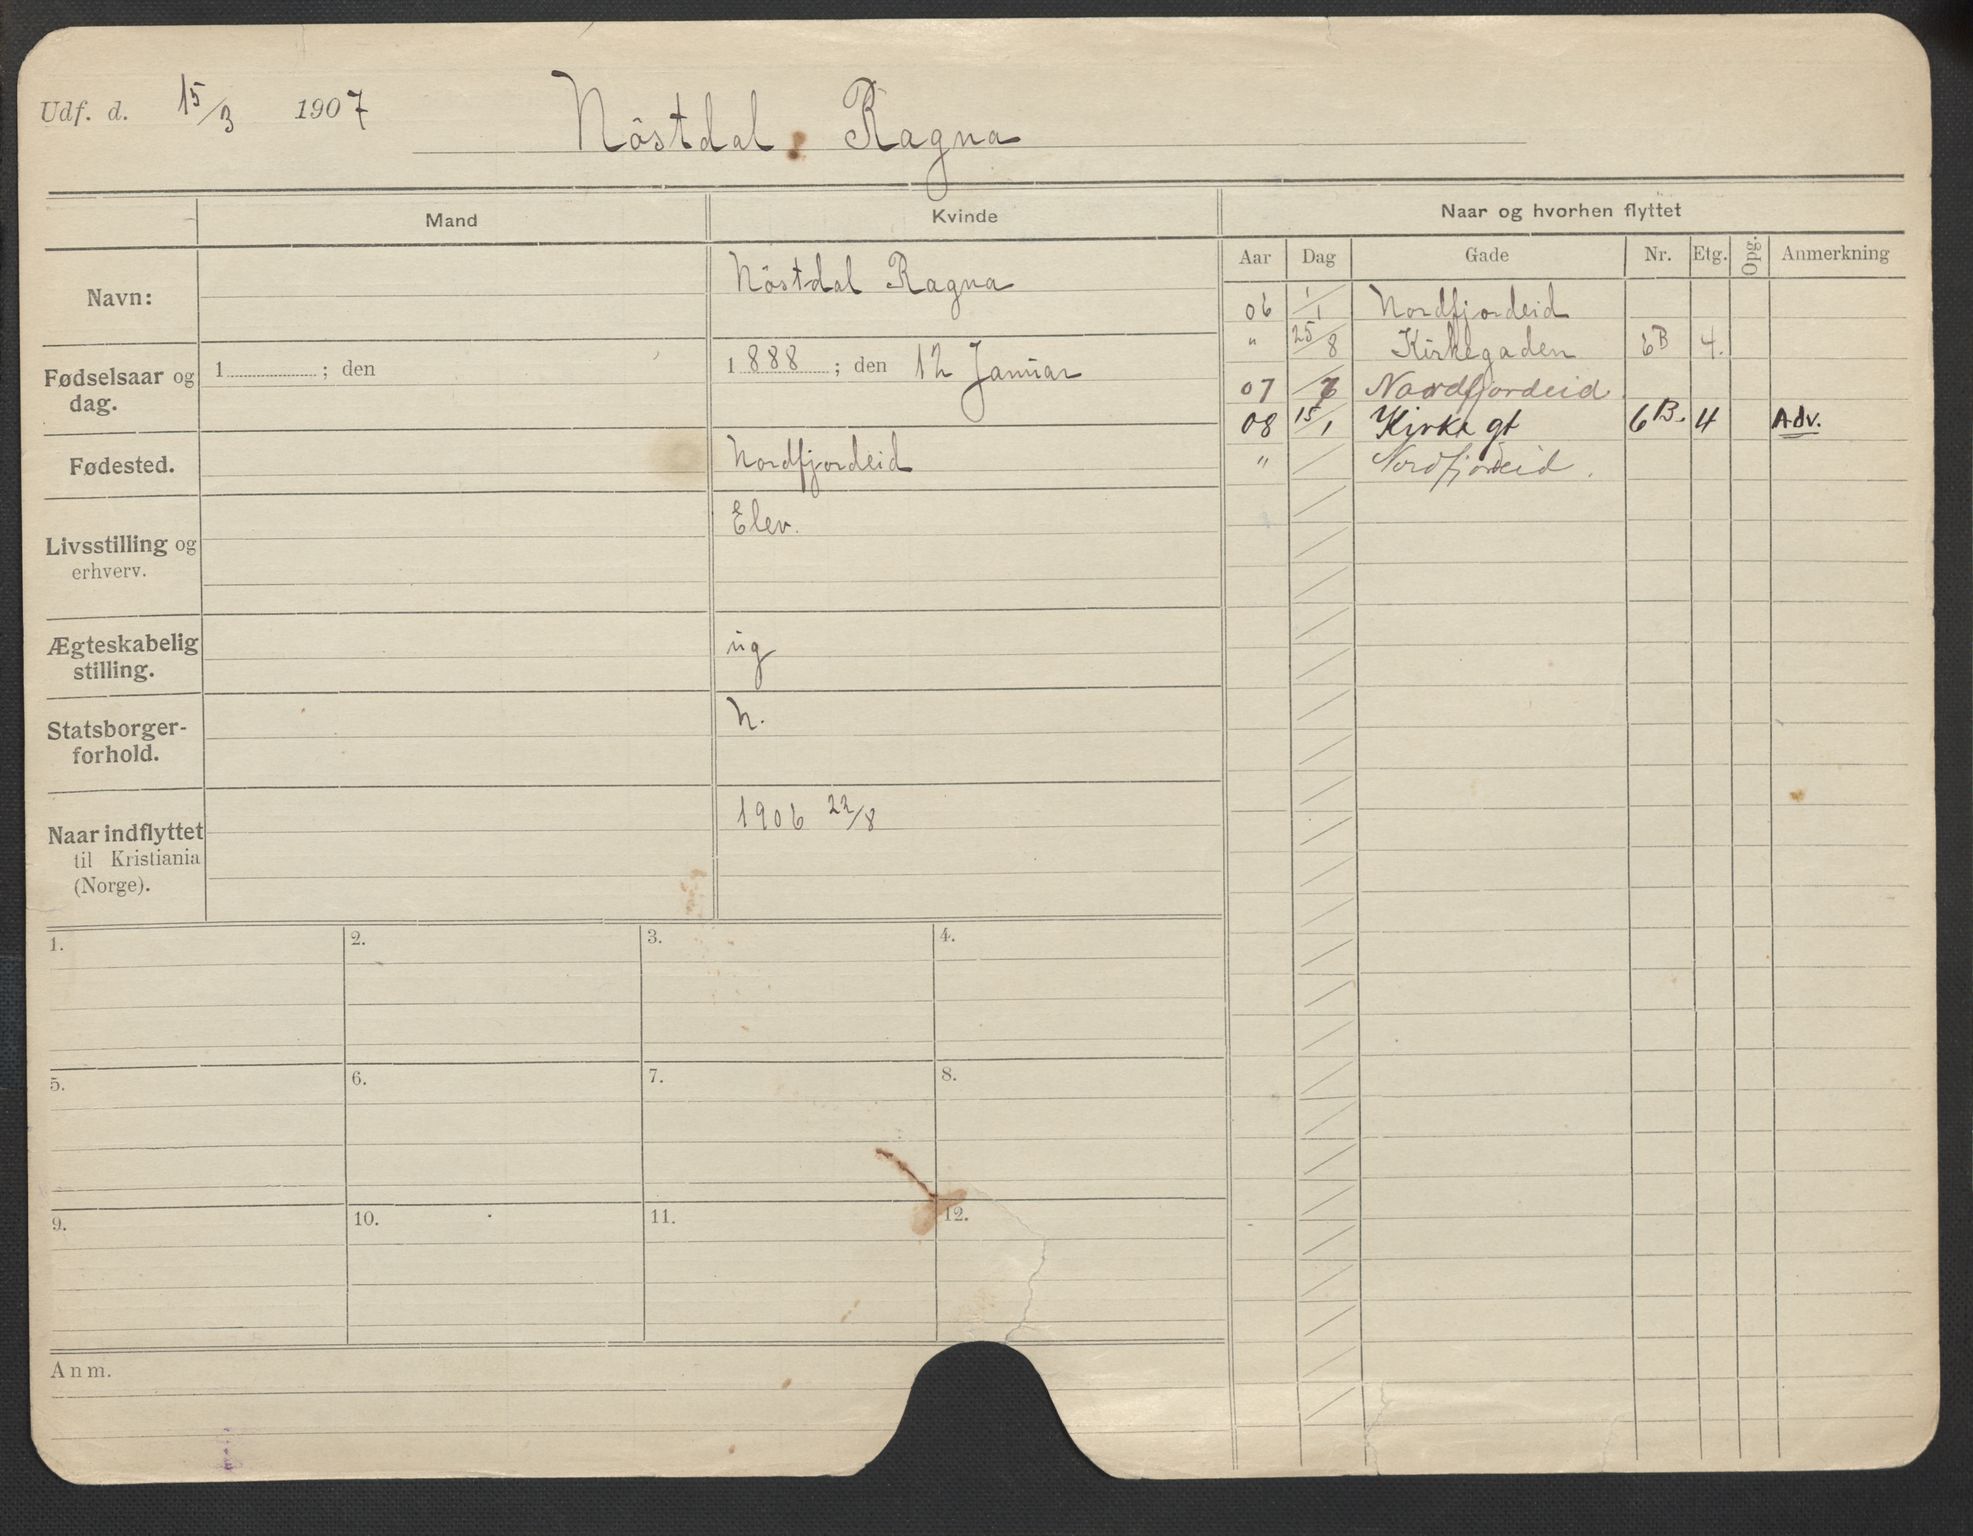 Udf. d. 15/3 1907 Nöstdal, Ragna
Mand Kvinde Naar og hvorhen flyttet
Aar Dag Gade Nr. Etg. Opg. Anmerkning
Navn: Nöstdal Ragna
06 1/1 Nordfjordeid
" 25/8 Kirkegaden 6B 4.
Fødselsaar og dag. 1 ; den 1888 ; den 12 Januar
07 /6 Nordfjordeid
08 15/1 Kirkegt 6B. 4 Adv.
" / Nordfjordeid.
Fødested. Nordfjordeid
Livsstilling og erhverv. Elev.
Ægteskabelig stilling. ug
Statsborger-
forhold. N.
Naar indflyttet 1906 22/8
til Kristiania
(Norge).
1. 2. 3. 4.
5. 6. 7. 8.
9. 10. 11. 12.
Anm.